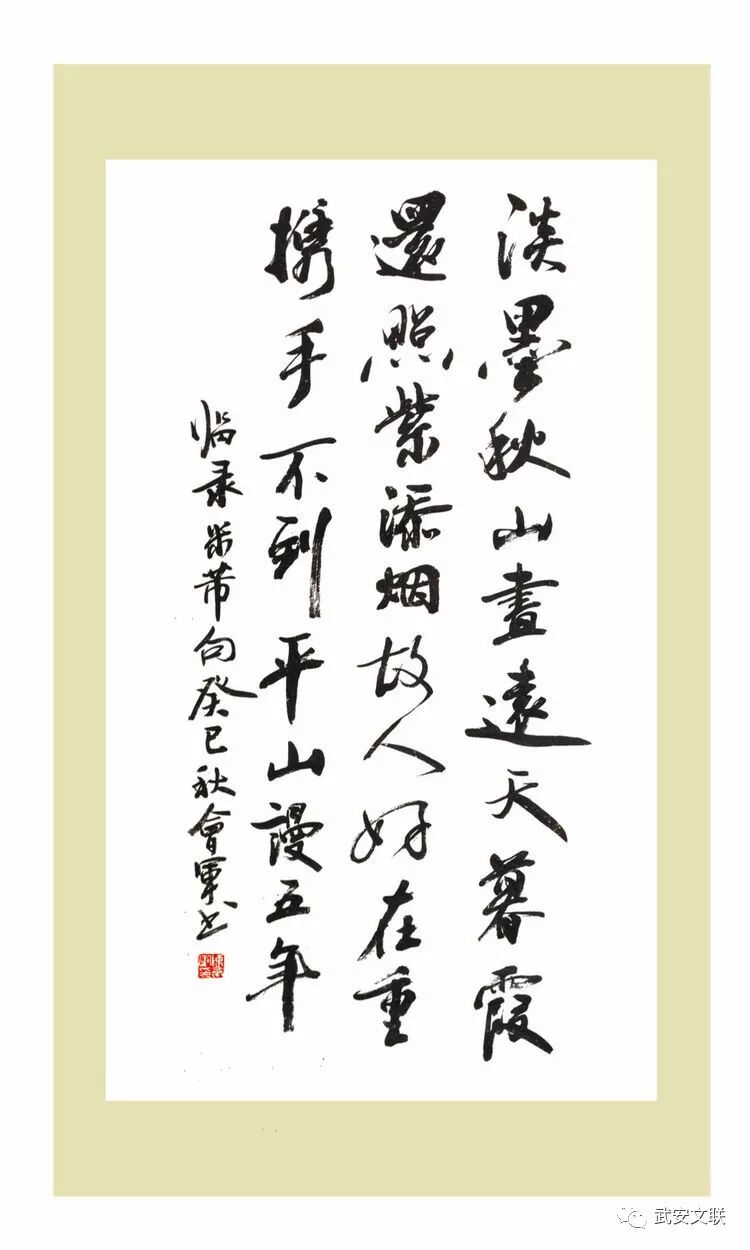 淡墨秋山畫遠天暮霞
還照紫添烟故人好在重
携手不到平山謾五年
临录米芾句癸巳秋會軍书
武安文联